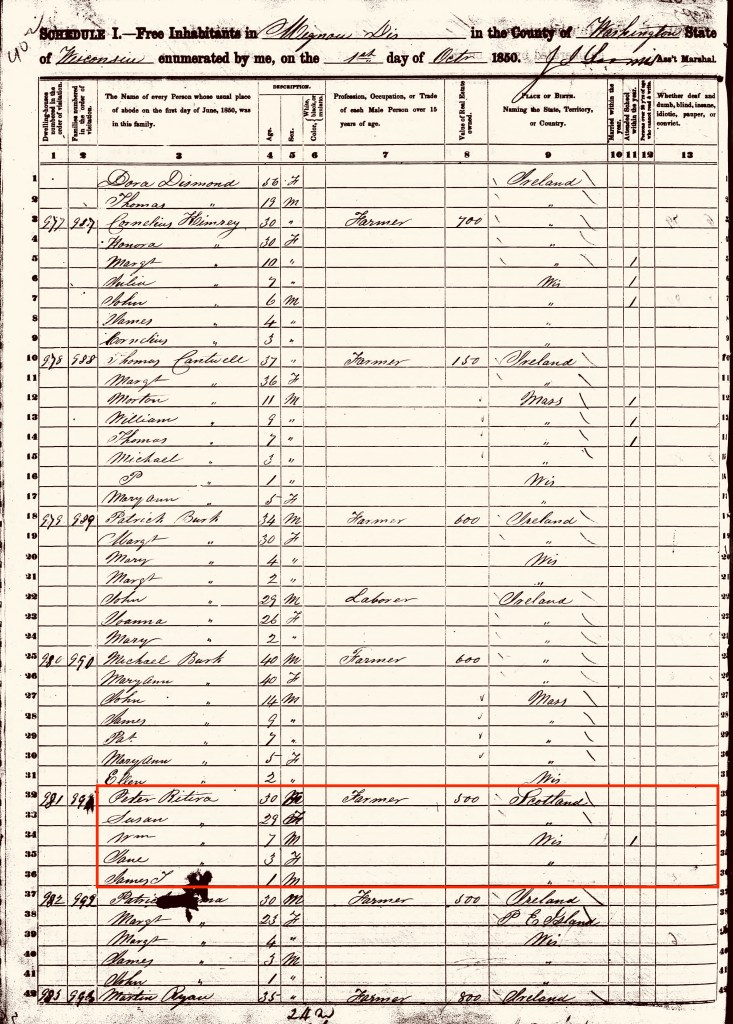 SCHEDULE I.—Free Inhabitants in Mequon Dis in the County of Washington State
of Wisconsin enumerated by me, on the 1st day of Octr 1850. Ass't Marshal.
Dwelling-houses numbered in the order of visitation.
Families numbered in the order of visitation.
The Name of every Person whose usual place of abode on the first day of June, 1850, was in this family.
DESCRIPTION.
Age.
Sex.
Color, White, black, or mulatto.
Profession, Occupation, or Trade of each Male Person over 15 years of age.
Value of Real Estate owned.
PLACE OF BIRTH. Naming the State, Territory, or Country.
Married within the year.
Attended School within the year.
Persons over 20 y'rs of age who cannot read & write.
Whether deaf and dumb, blind, insane, idiotic, pauper, or convict.
1 2 3 4 5 6 7 8 9 10 11 12 13
1 Dora Dismond 56 F Ireland
2 Thomas " 19 M "
3 977 987 Cornelius 30 " Farmer 700 "
4 Honora " 30 F "
5 Margt " 10 " " 1
6 Julia " 7 " Wis 1
7 John " 6 M " 1
8 James " 4 " "
9 Cornelius " 3 " "
10 978 988 Thomas Cantwell 37 " Farmer 150 Ireland
11 Margt " 36 F "
12 Morton " 11 M Mass 1
13 William " 9 " " 1
14 Thomas " 7 " " 1
15 Michael " 3 " "
16 P " 1 " Wis
17 Mary Ann " 5 F "
18 979 989 Patrick Burk 34 M Farmer 600 Ireland
19 Margt " 30 F "
20 Mary " 4 " Wis
21 Margt " 2 " "
22 John " 29 M Laborer Ireland
23 Joanna " 26 F "
24 Mary " 2 " "
25 980 990 Michael Burk 40 M Farmer 600 "
26 Mary Ann " 40 F "
27 John " 14 M Mass
28 James " 9 " "
29 Pat. " 7 " "
30 Mary Ann " 5 F "
31 Ellen " 2 " Wis
32 981 Peter Ritira 30 M Farmer 500 Scotland
33 Susan " 29 F "
34 Wm " 7 M Wis 1
35 Jane " 3 F "
36 James T " 1 M "
37 982 30 M Farmer 500 Ireland
38 Margt " 23 F P E Island
39 Margt " 4 " Wis
40 James " 3 M "
41 John " 1 " "
42 983 Martin Ryan 35 " Farmer 800 Ireland
242